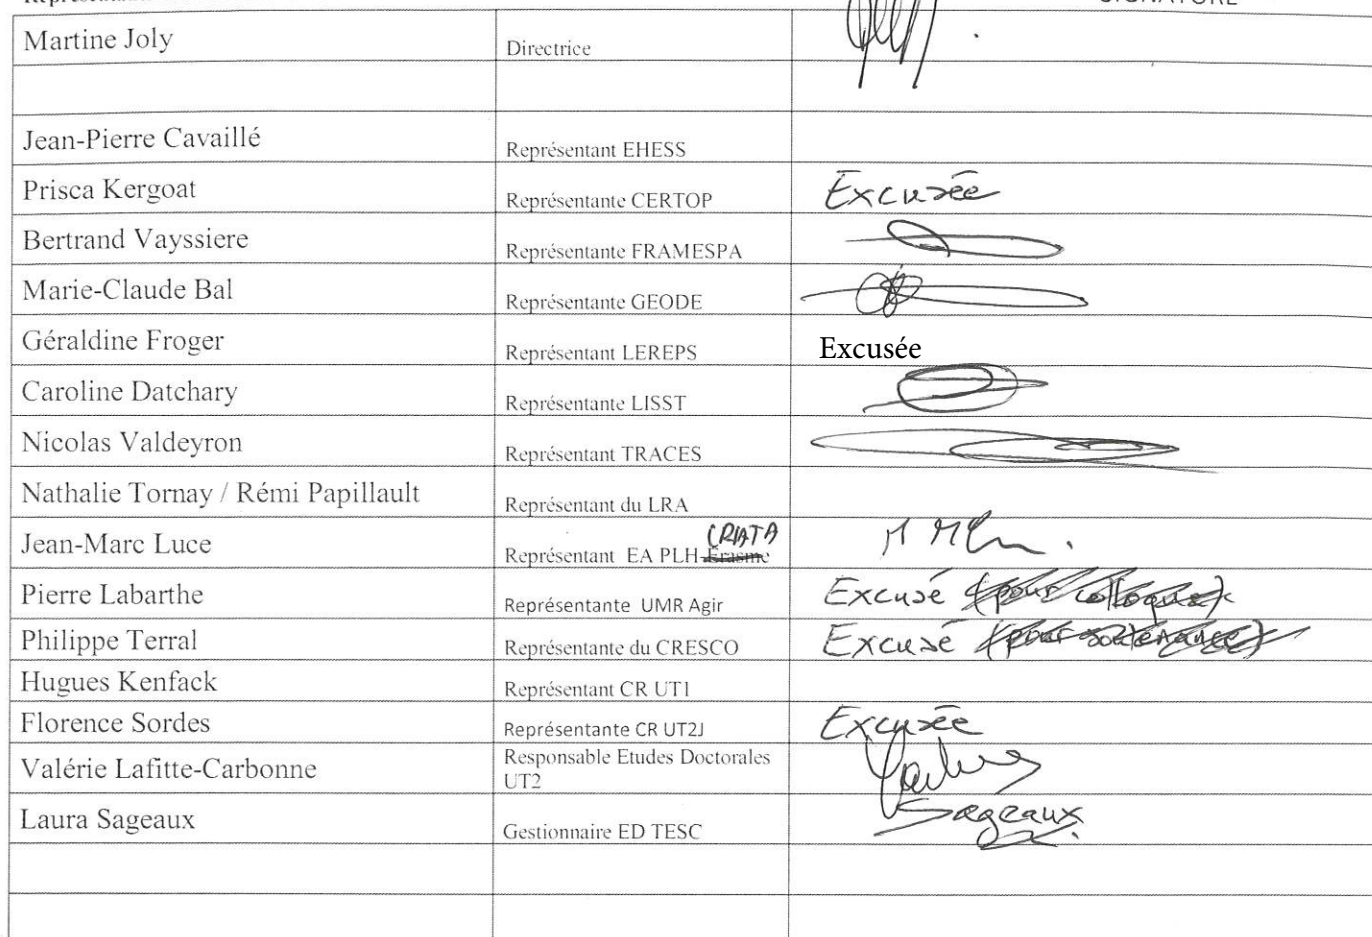 SIGNATURE
Martine Joly Directrice
Jean-Pierre Cavaillé Représentant EHESS
Prisca Kergoat Représentante CERTOP Excusée
Bertrand Vayssiere Représentante FRAMESPA
Marie-Claude Bal Représentante GEODE
Géraldine Froger Représentant LEREPS Excusée
Caroline Datchary Représentante LISST
Nicolas Valdeyron Représentant TRACES
Nathalie Tornay / Rémi Papillault Représentant du LRA
CRATA
Jean-Marc Luce Représentant EA PLH-Erasme
Pierre Labarthe Représentante UMR Agir Excusé (pour colloque)
Philippe Terral Représentante du CRESCO Excusé (pour soutenance)
Hugues Kenfack Représentant CR UT1
Florence Sordes Représentante CR UT2J Excusée
Valérie Lafitte-Carbonne Responsable Etudes Doctorales
UT2
Laura Sageaux Gestionnaire ED TESC Sageaux